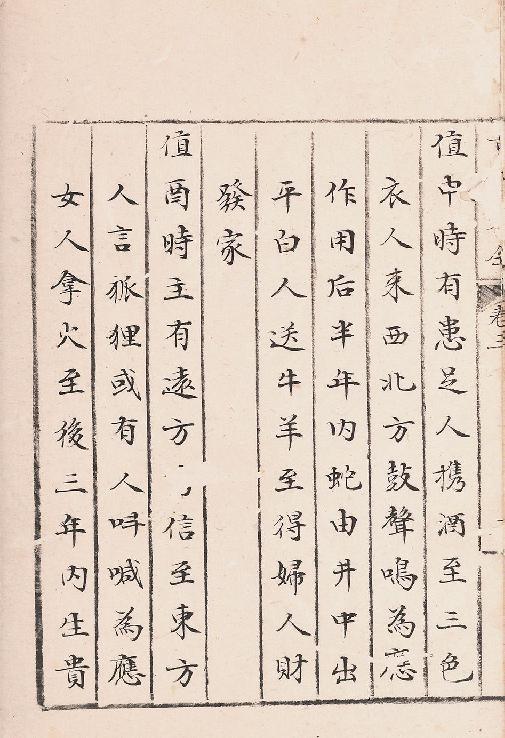 全 卷三
值申時有患足人携酒至三色
衣人来西北方鼓聲鳴為應
作用后半年内蛇由井中出
平白人送牛羊至得婦人財
發家
值酉時主有遠方信至東方
人言狐狸或有人呌喊為應
女人拿火至後三年内生貴